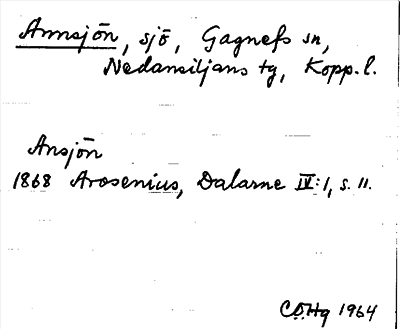 Annsjön, sjö, Gagnefs sn,
Nedansiljans tg, Kopp. l.
Ansjön
1868 Arosenius, Dalarne IV:1, s. 11.
CÖHg 1964